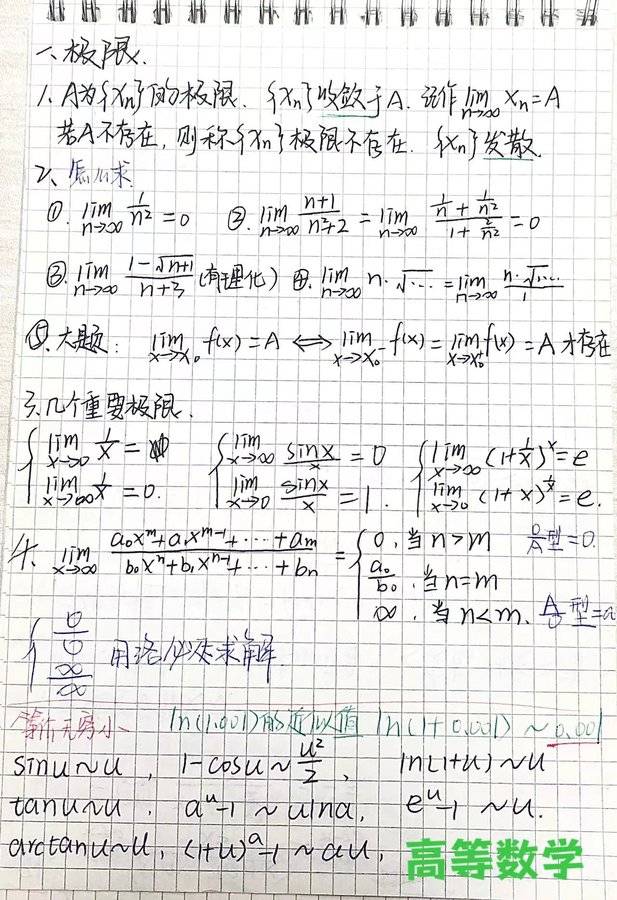 一、极限.
1. A为{Xn}的极限. {Xn}收敛于A. 记作 lim n→∞ Xn=A
若A不存在, 则称{Xn}极限不存在. {Xn}发散.
2、怎么求
①. lim n→∞ 1/n² =0 ②. lim n→∞ (n+1)/(n²+2) = lim n→∞ (1/n + 1/n²)/(1+ 2/n²) =0
③. lim n→∞ (1-√(n+1))/(n+3) (有理化) ④. lim n→∞ n·√… = lim n→∞ (n·√…)/1
⑤. 大题: lim x→x₀ f(x)=A ⟺ lim x→x₀⁻ f(x)= lim x→x₀⁺ f(x)=A 才存在
3、几个重要极限.
lim x→0 1/x = ∞ lim x→∞ sinx/x = 0 lim x→∞ (1+1/x)^x = e
lim x→∞ 1/x = 0. lim x→0 sinx/x = 1. lim x→0 (1+x)^(1/x) = e.
4. lim x→∞ (a₀x^m+a₁x^(m-1)+…+am)/(b₀x^n+b₁x^(n-1)+…+bn) = { 0, 当n>m 0/A型=0.
a₀/b₀, 当n=m
∞, 当n<m. A/0型=∞
{ 0/0 ∞/∞ 用洛必达求解.
等价无穷小 ln(1.001)的近似值 ln(1+0.001) ~ 0.001
sinu~u, 1-cosu~u²/2, ln(1+u)~u
tanu~u, a^u-1 ~ ulna, e^u-1 ~u.
arctanu~u, (1+u)^a-1 ~ au,
高等数学